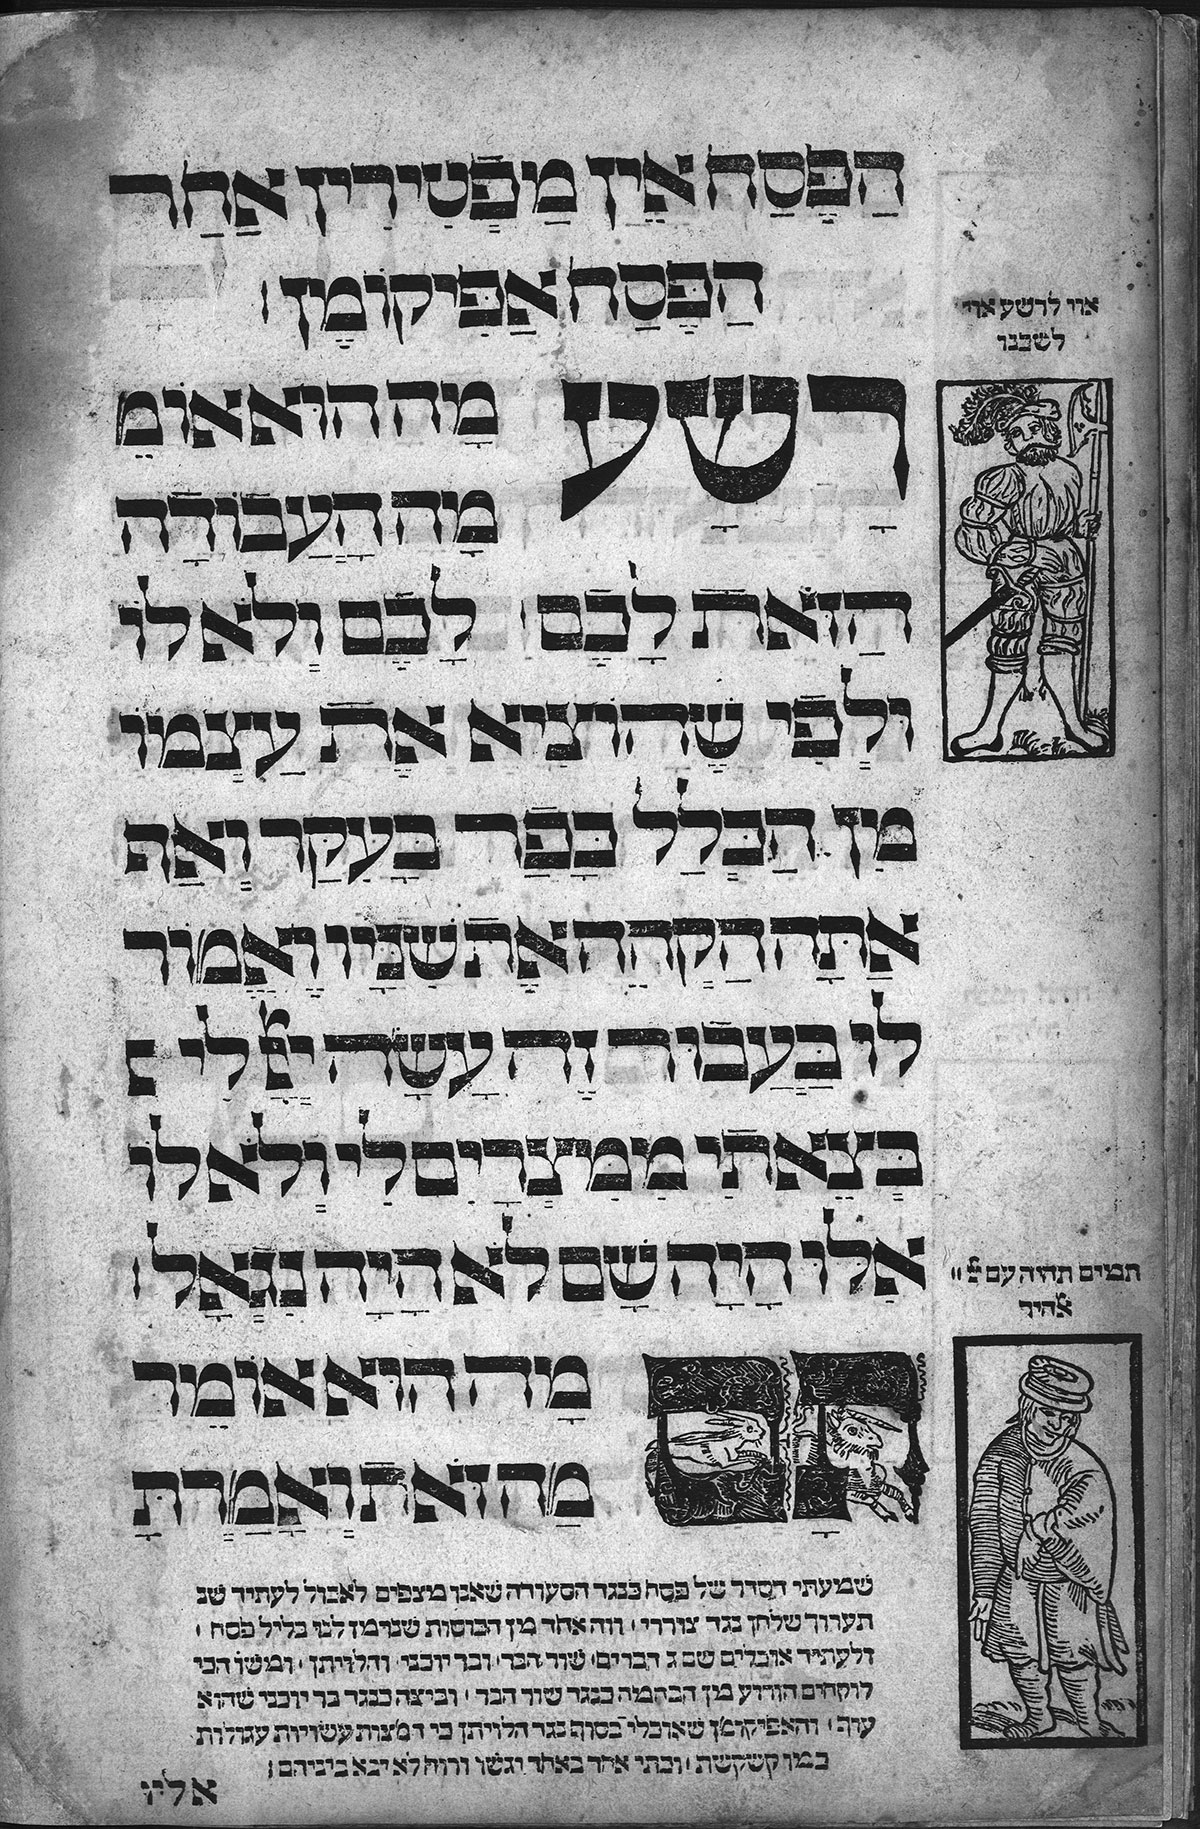 הַפֶּסַח אֵין מַפְטִירִין אַחַר
הַפֶּסַח אֲפִיקוֹמָן׃
אוי לרשע אוי
לשכנו
רָשָׁע
מָה הוּא אוֹמֵ
מָה הָעֲבוֹדָה
הַזֹּאת לָכֶם׃ לָכֶם וְלֹא לוֹ
וּלְפִי שֶׁהוֹצִיא אֶת עַצְמוֹ
מִן הַכְּלָל כָּפַר בָּעִקָּר וְאַף
אַתָּה הַקְהֵה אֶת שִׁנָּיו וֶאֱמוֹר
לוֹ בַּעֲבוּר זֶה עָשָׂה יְיָ לִי
בְּצֵאתִי מִמִּצְרָיִם לִי וְלֹא לוֹ
אִלּוּ הָיָה שָׁם לֹא הָיָה נִגְאָל׃
תמים תהיה עם יי
אלהיך
תָּם
מָה הוּא אוֹמֵר
מַה זֹּאת וְאָמַרְתָּ
שמעתי הסדר של פסח כנגד הסעודה שאנו מצפים לאכול לעתיד שנ
תערוך שלחן נגד צוררי׳ וזה אחד מן הכוסות שנזימן לנו בליל פסח׳
ולעתיד אוכלים שם ג דברים׳ שור הבר׳ ובר יוכני׳ והלויתן׳ ומשו הכי
לוקחים הזרוע מן הבהמה כנגד שור הבר׳ וביצה כנגד בר יוכני שהוא
עוף׳ והאפיקומן שאוכלי׳ בסוף נגד הלויתן כי המצות עשויות עגולות
כמו קשקשת׳ וכתי׳ אחד באחד יגשו ורוח לא יבא ביניהם׃
אליו